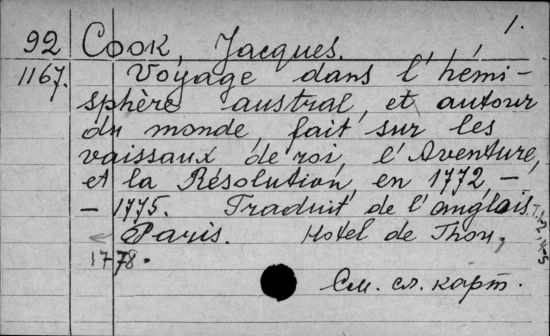 1.
92 Cook, Jacques.
1167. Voyage dans l'hémi-
sphère austral, et autour
du monde, fait sur les
vaissaux de roi, l'Aventure,
et la Résolution, en 1772, –
– 1775. Traduit de l'anglais.
Paris. Hotel de Thou,
1778.
См. сл. карт.